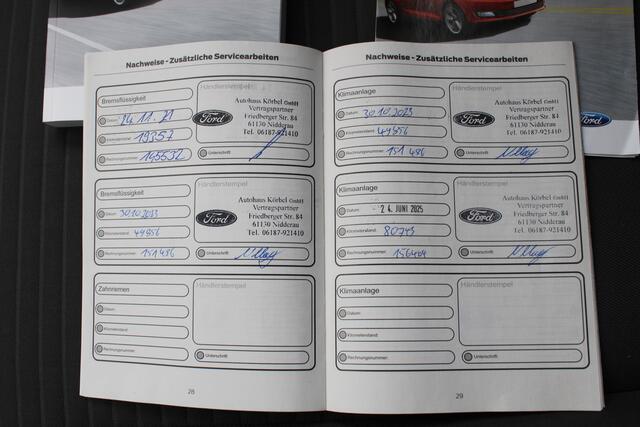 Nachweise - Zusätzliche Servicearbeiten
Bremsflüssigkeit
Datum: 24.11.21
Kilometerstand: 19357
Rechnungsnummer: 145532
Händlerstempel
Ford
Autohaus Körbel GmbH
Vertragspartner
Friedberger Str. 84
61130 Nidderau
Tel. 06187-921410
Unterschrift
Bremsflüssigkeit
Datum: 30.10.2023
Kilometerstand: 49856
Rechnungsnummer: 151486
Händlerstempel
Ford
Autohaus Körbel GmbH
Vertragspartner
Friedberger Str. 84
61130 Nidderau
Tel. 06187-921410
Unterschrift
Zahnriemen
Datum:
Kilometerstand:
Rechnungsnummer:
Händlerstempel
Unterschrift
28
Nachweise - Zusätzliche Servicearbeiten
Klimaanlage
Datum: 30.10.2023
Kilometerstand: 49856
Rechnungsnummer: 151486
Händlerstempel
Ford
Autohaus Körbel GmbH
Vertragspartner
Friedberger Str. 84
61130 Nidderau
Tel. 06187-921410
Unterschrift
Klimaanlage
Datum: 24. JUNI 2025
Kilometerstand: 80743
Rechnungsnummer: 156404
Händlerstempel
Ford
Autohaus Körbel GmbH
Vertragspartner
Friedberger Str. 84
61130 Nidderau
Tel. 06187-921410
Unterschrift
Klimaanlage
Datum:
Kilometerstand:
Rechnungsnummer:
Händlerstempel
Unterschrift
29
Ford